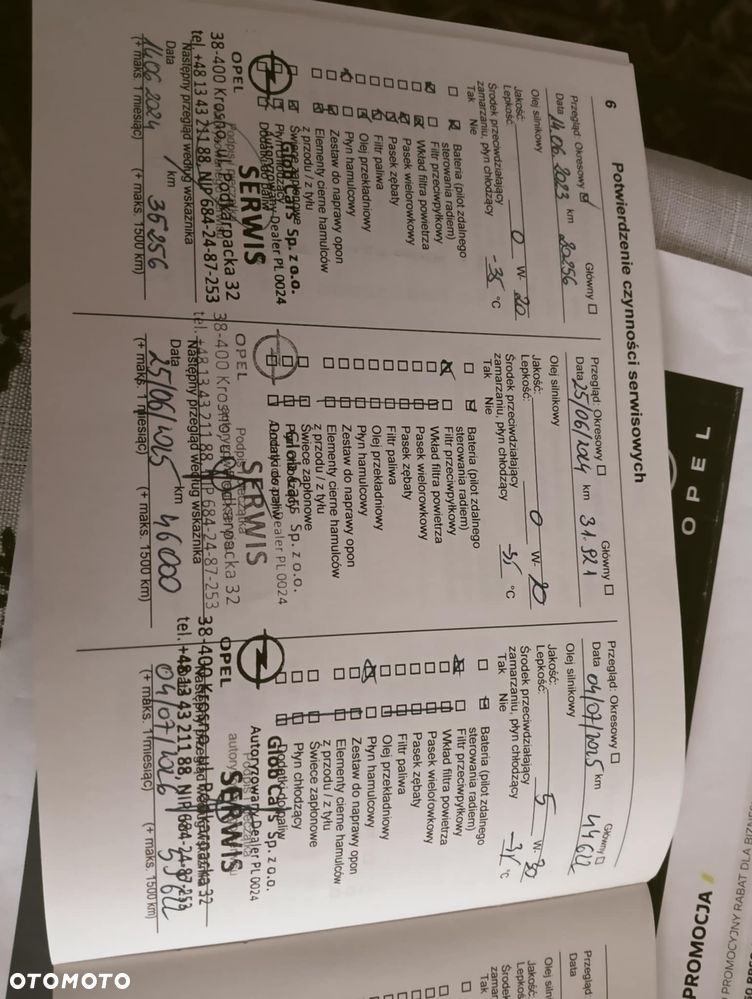 6
Potwierdzenie czynności serwisowych
Przegląd: Okresowy
Główny
Data 14.06.2023 km 20256
Olej silnikowy
Jakość:
Lepkość: 0 W- 20
Środek przeciwdziałający
zamarzaniu, płyn chłodzący -35 °C
Tak Nie
Bateria (pilot zdalnego
sterowania radiem)
Filtr przeciwpyłkowy
Wkład filtra powietrza
Pasek wielorowkowy
Pasek zębaty
Filtr paliwa
Olej przekładniowy
Płyn hamulcowy
Zestaw do naprawy opon
Elementy cierne hamulców
z przodu / z tyłu
Świece zapłonowe
Płyn chłodzący
Dodatki do paliw
Glob Cars Sp. z o.o.
Autoryzowany Dealer PL 0024
SERWIS
OPEL
38-400 Krosno, ul. Podkarpacka 32
tel. +48 13 43 211 88, NIP 684-24-87-253
Następny przegląd według wskaźnika
Data
km
14.06.2024 35256
(+ maks. 1 miesiąc) (+ maks. 1500 km)
Przegląd: Okresowy
Główny
Data 25/06/2024 km 31.921
Olej silnikowy
Jakość:
Lepkość: 0 W- 20
Środek przeciwdziałający
zamarzaniu, płyn chłodzący -35 °C
Tak Nie
Bateria (pilot zdalnego
sterowania radiem)
Filtr przeciwpyłkowy
Wkład filtra powietrza
Pasek wielorowkowy
Pasek zębaty
Filtr paliwa
Olej przekładniowy
Płyn hamulcowy
Zestaw do naprawy opon
Elementy cierne hamulców
z przodu / z tyłu
Świece zapłonowe
Glob Cars Sp. z o.o.
Dealer PL 0024
SERWIS
OPEL
38-400 Krosno, ul. Podkarpacka 32
tel. +48 13 43 211 88, NIP 684-24-87-253
Następny przegląd według wskaźnika
Data
km
25/06/2025 46000
(+ maks. 1 miesiąc) (+ maks. 1500 km)
Przegląd: Okresowy
Główny
Data 04/07/2025 km 44622
Olej silnikowy
Jakość:
Lepkość: 5 W- 30
Środek przeciwdziałający
zamarzaniu, płyn chłodzący °C
Tak Nie
Bateria (pilot zdalnego
sterowania radiem)
Filtr przeciwpyłkowy
Wkład filtra powietrza
Pasek wielorowkowy
Pasek zębaty
Filtr paliwa
Olej przekładniowy
Płyn hamulcowy
Zestaw do naprawy opon
Elementy cierne hamulców
z przodu / z tyłu
Świece zapłonowe
Płyn chłodzący
Dodatki do paliw
Glob Cars Sp. z o.o.
Autoryzowany Dealer PL 0024
SERWIS
OPEL
38-400 Krosno, ul. Podkarpacka 32
tel. +48 13 43 211 88, NIP 684-24-87-253
04/07/2026
(+ maks. 1 miesiąc) (+ maks. 1500 km)
Przegląd:
Data
Olej silni
Jakość:
Lepkość
Środek
Tak
OPEL
PROMOCJA
PROMOCYJNY RABAT DLA
OTOMOTO